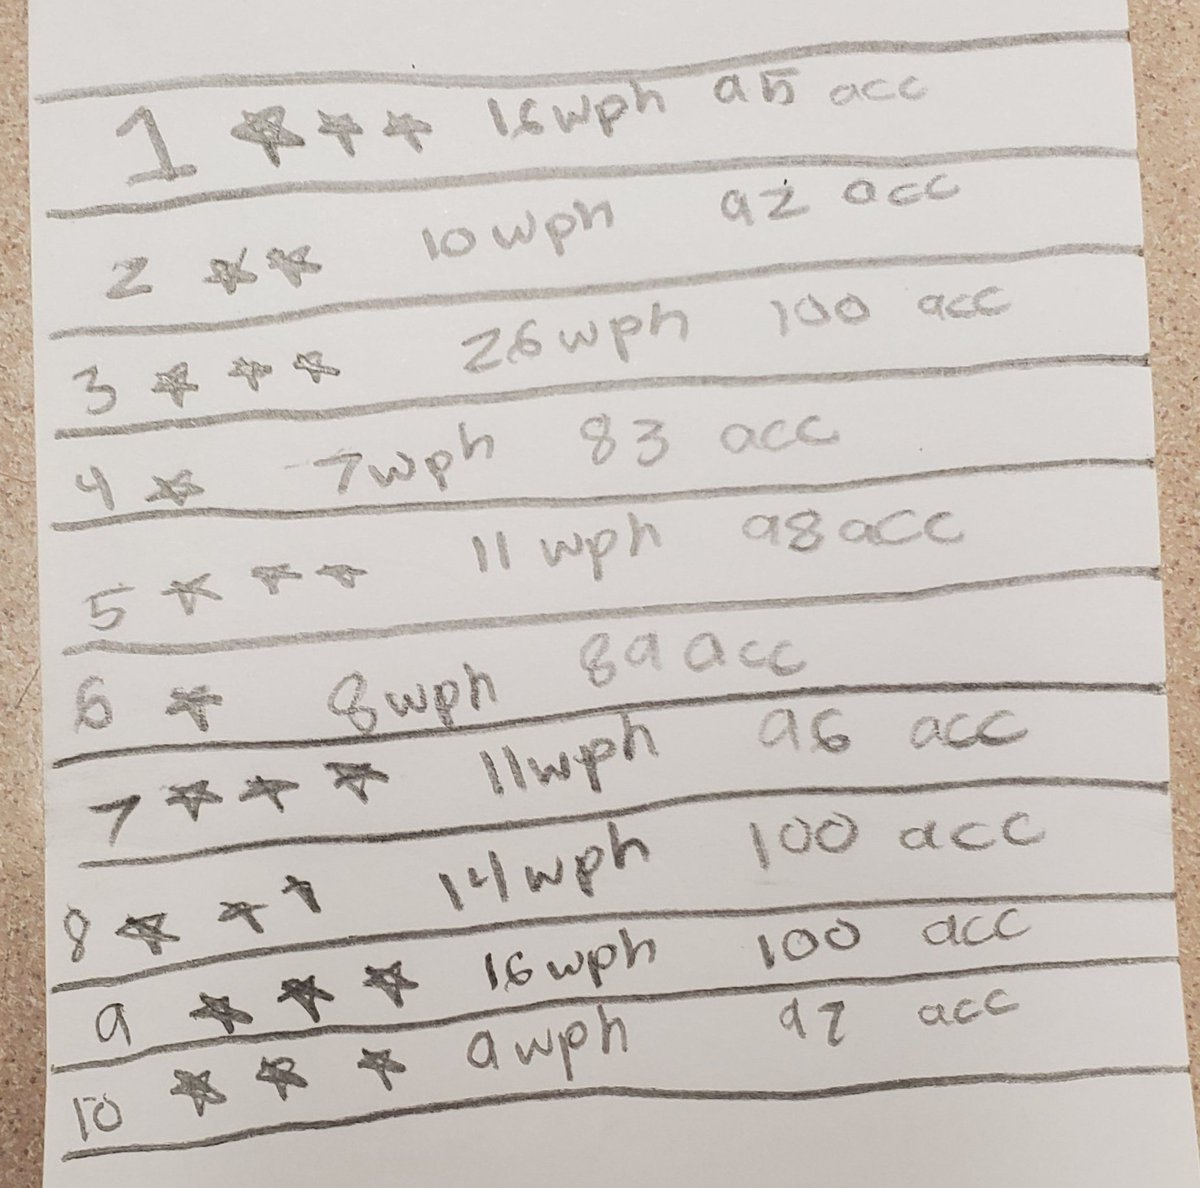 1 ★★★ 16wph 95 acc
2 ★★ 10wph 92 acc
3 ★★★ 26wph 100 acc
4 ★ 7wph 83 acc
5 ★★★ 11wph 98 acc
6 ★ 8wph 89 acc
7 ★★★ 11wph 96 acc
8 ★★★ 14wph 100 acc
9 ★★★ 16wph 100 acc
10 ★★★ 9wph 97 acc